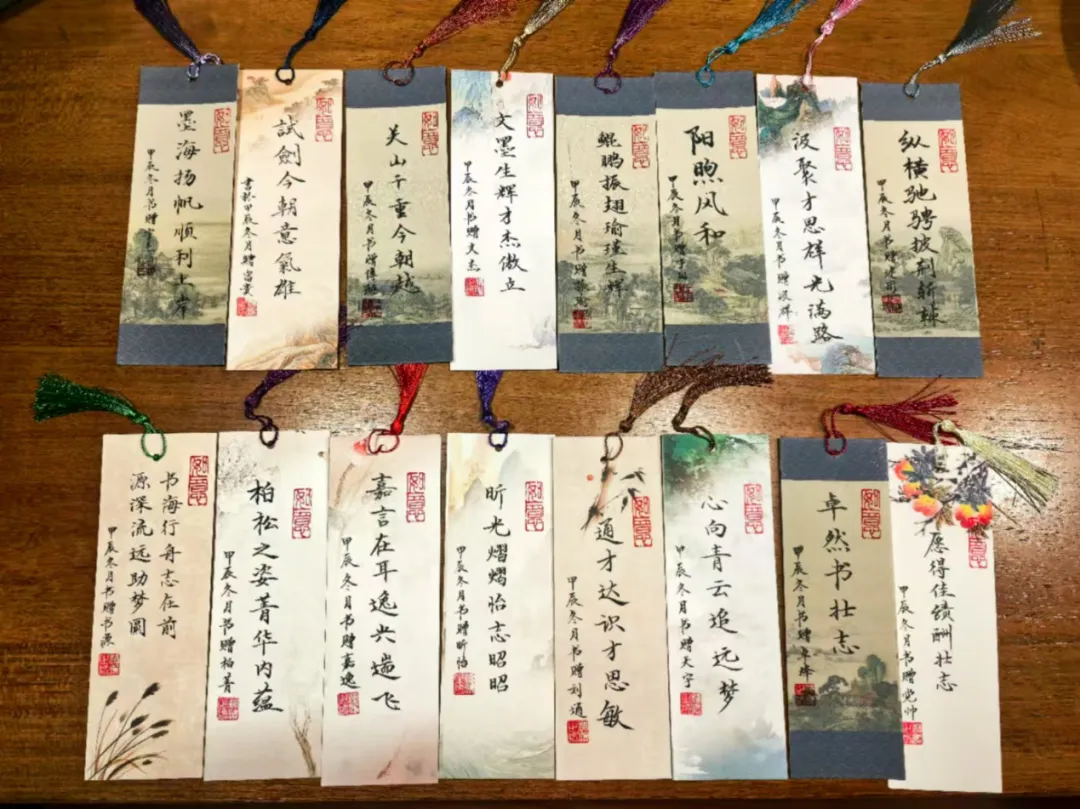 如意
墨海扬帆顺利上岸
甲辰冬月书赠
如意
試劍今朝意氣雄
書於甲辰冬月赠富贵
如意
关山千重今朝越
甲辰冬月书赠
如意
文墨生辉才杰傲立
甲辰冬月书赠文杰
如意
鲲鹏振翅瑜瑾生辉
甲辰冬月书赠
如意
阳煦风和
甲辰冬月书赠
如意
汲聚才思群光满路
甲辰冬月书赠汲群
如意
纵横驰骋披荆斩棘
甲辰冬月书赠
如意
书海行舟志在前
源深流远助梦圆
甲辰冬月书赠书源
如意
柏松之姿菁华内蕴
甲辰冬月书赠柏菁
如意
嘉言在耳逸兴遄飞
甲辰冬月书赠嘉逸
如意
昕光熠熠怡志昭昭
甲辰冬月书赠昕怡
如意
通才达识才思敏
甲辰冬月书赠利通
如意
心向青云追远梦
甲辰冬月书赠天宇
如意
卓然书壮志
甲辰冬月书赠卓
愿得佳绩酬壮志
甲辰冬月书赠党帅